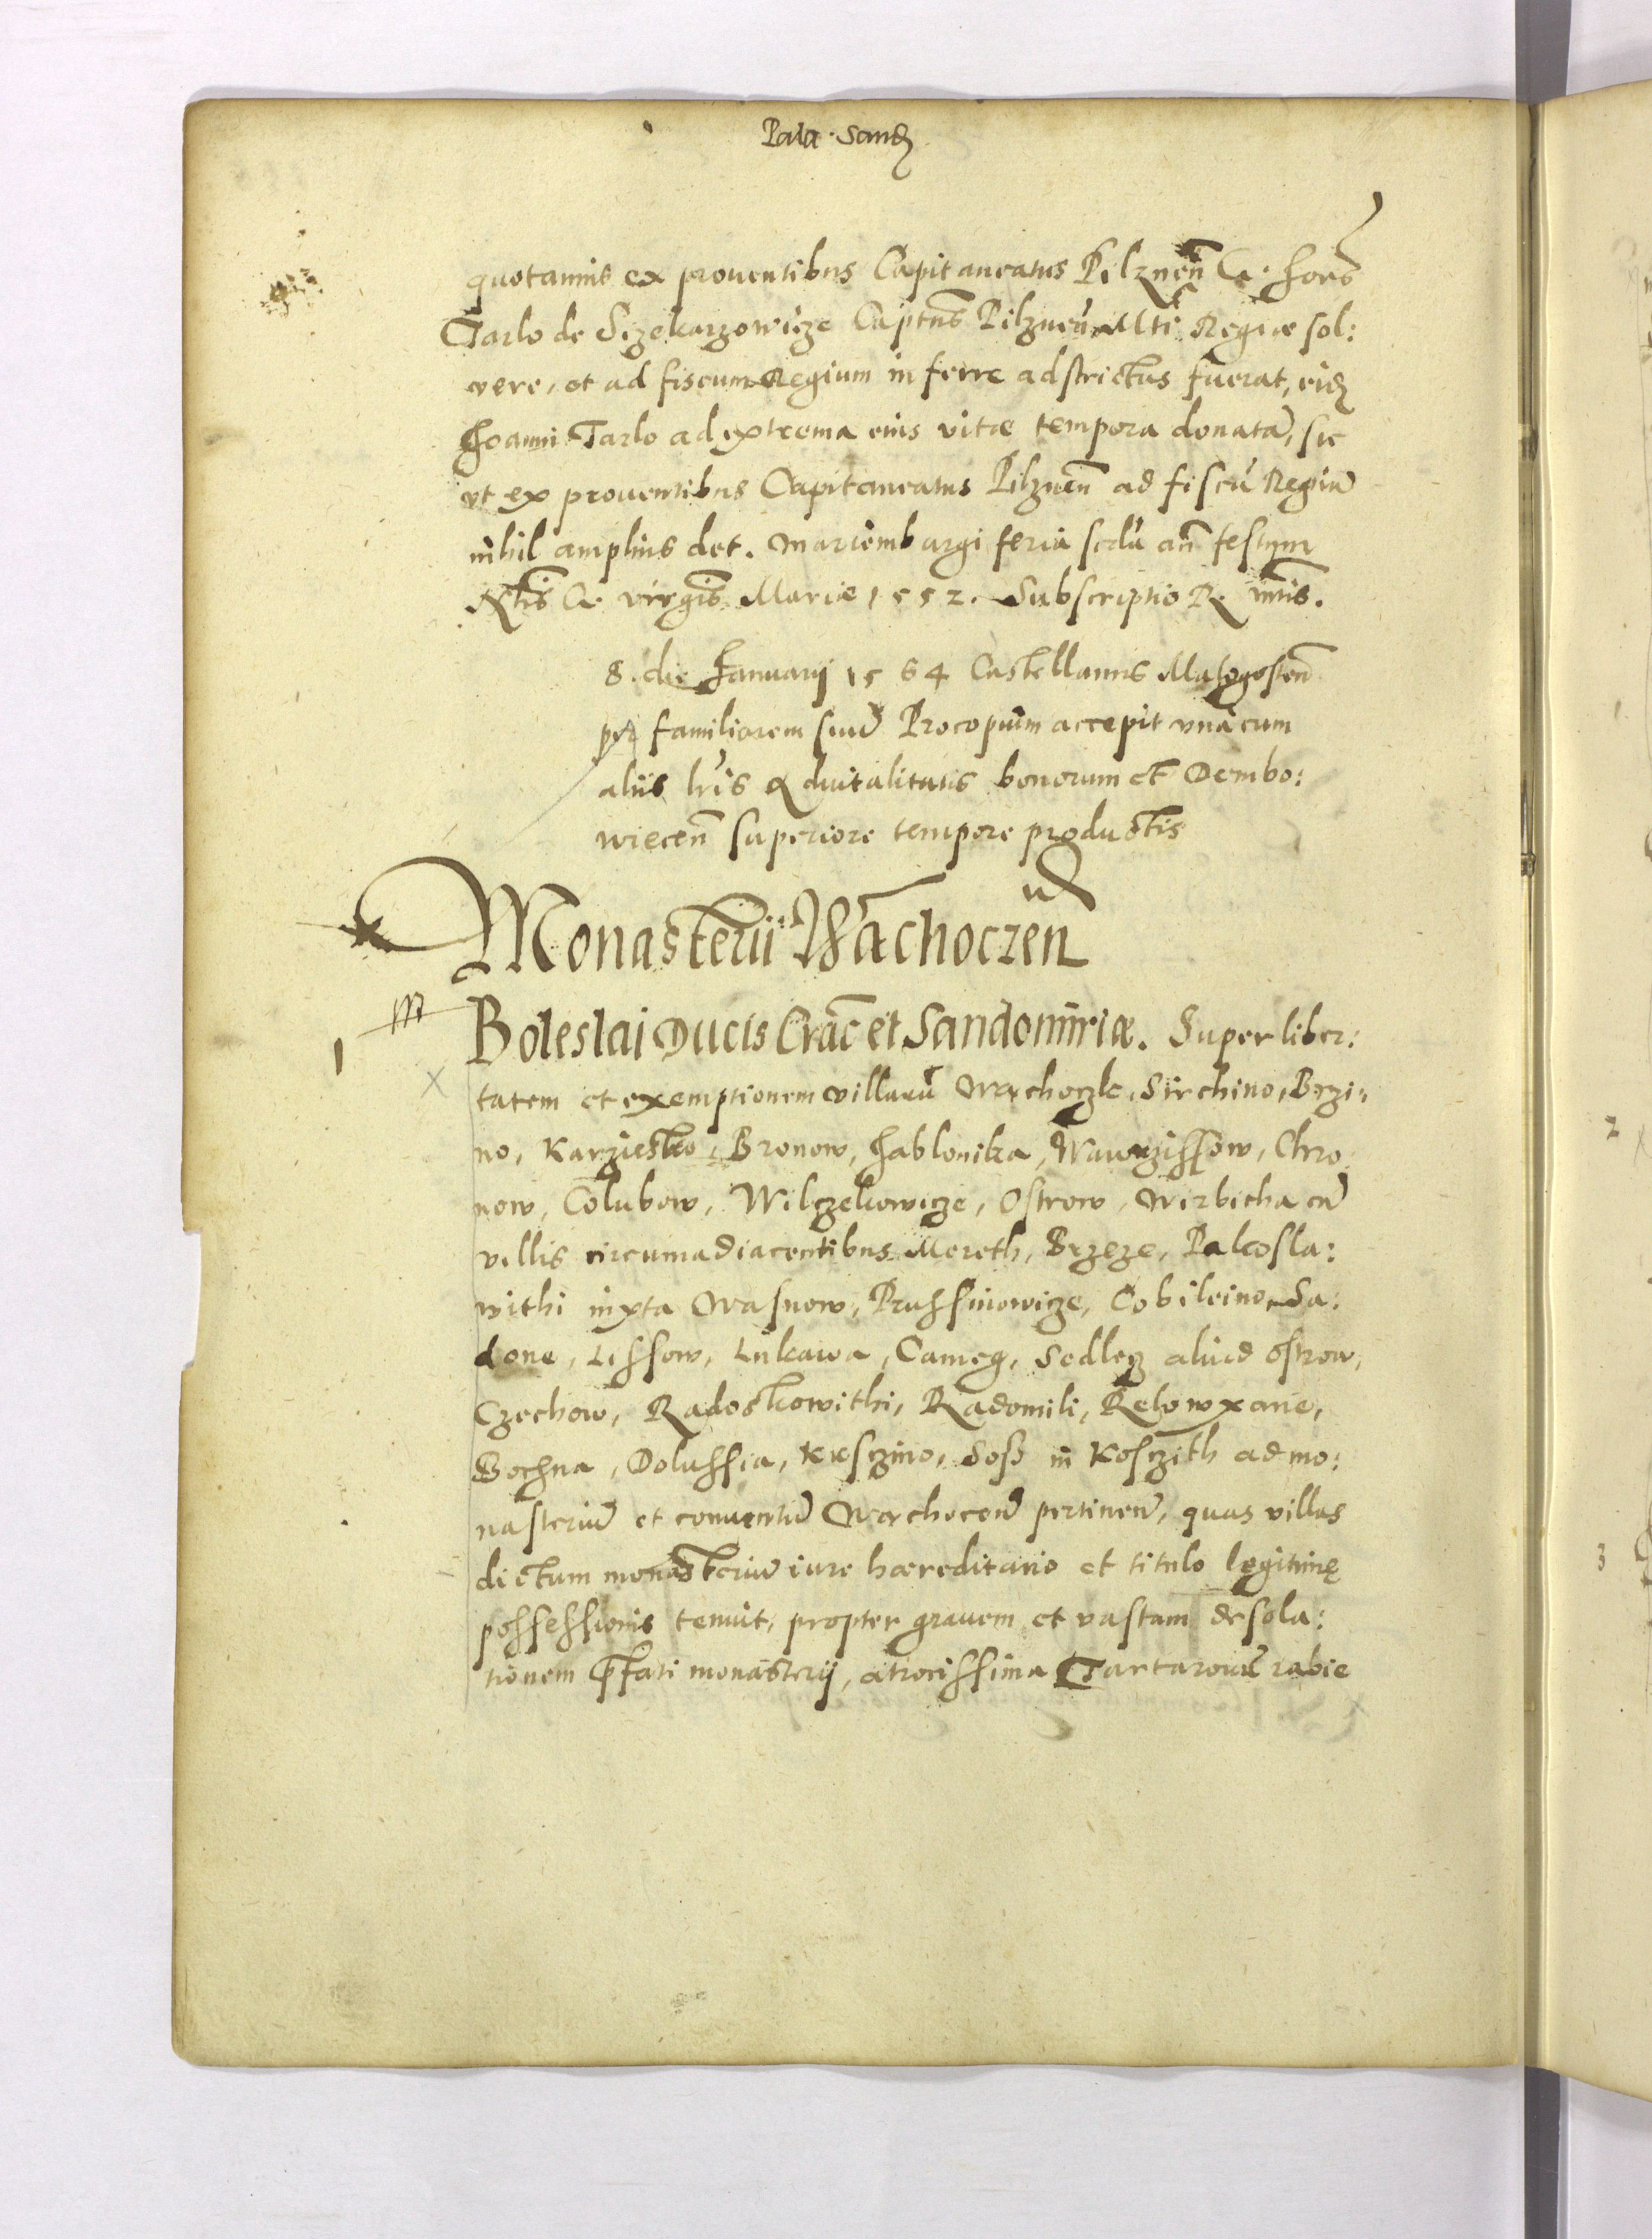 Pala. Sand
quotannis ex prouentibus Capitaneatus Pilznen̄ G. Joēs
Tarlo de Sczekarzowicze Captn̄s Pilznen̄ Mti Regiæ sol:
vere, et ad fiscum Regium inferre adstrictus fuerat, eidꝫ
Joanni Tarlo ad extrema eius vitæ tempora donata, sic
vt ex prouentibus Capitaneatus Pilznen̄ ad fiscū Regiū
nihil amplius det. Mariemburgi feria scda an̄ festum
Ntīs G. virgīs Mariæ 1552. Subscriptio R. mtīs.
8. die Januarij 1564 Castellanus Malogosten̄
per familiarem suū Procopium accepit vna cum
aliis lrīs aduitalitatis bonorum et Dembo:
wiecen̄ superiore tempore productis
Monasterii Wāchoczen
1
Boleslai Ducis Crac̄ et Sandomiriæ. Super liber:
tatem et exemptionem villarū Wachoczk, Sirchino, Brzi:
no, Karziesko, Bronow, Jablonika, Wawrzissow, Chro
now, Colubow, Wilczekowicze, Ostrow, Wirbicha cū
villis circumadiacentibus Mereth, Brzeze, Pakosla:
withi iuxta Wasnow, Prussinowicze, Cobileino, Sa:
done, Lissow, Lukawa, Cameg, Sedlecz aliud ostrow,
Czechow, Radoskowithi, Radomili, Relowxane,
Bochna, Dolussia, Krsczino, Soss in Kosczith ad mo:
nasteriū et conuentū Wachocen̄ pertinen̄, quas villas
dictum monasteriū iure hæreditario et titulo legitimę
possessionis tenuit, propter grauem et vastam desola:
tionem p̄fati monasterij, atrocissima Tartarorū rabie